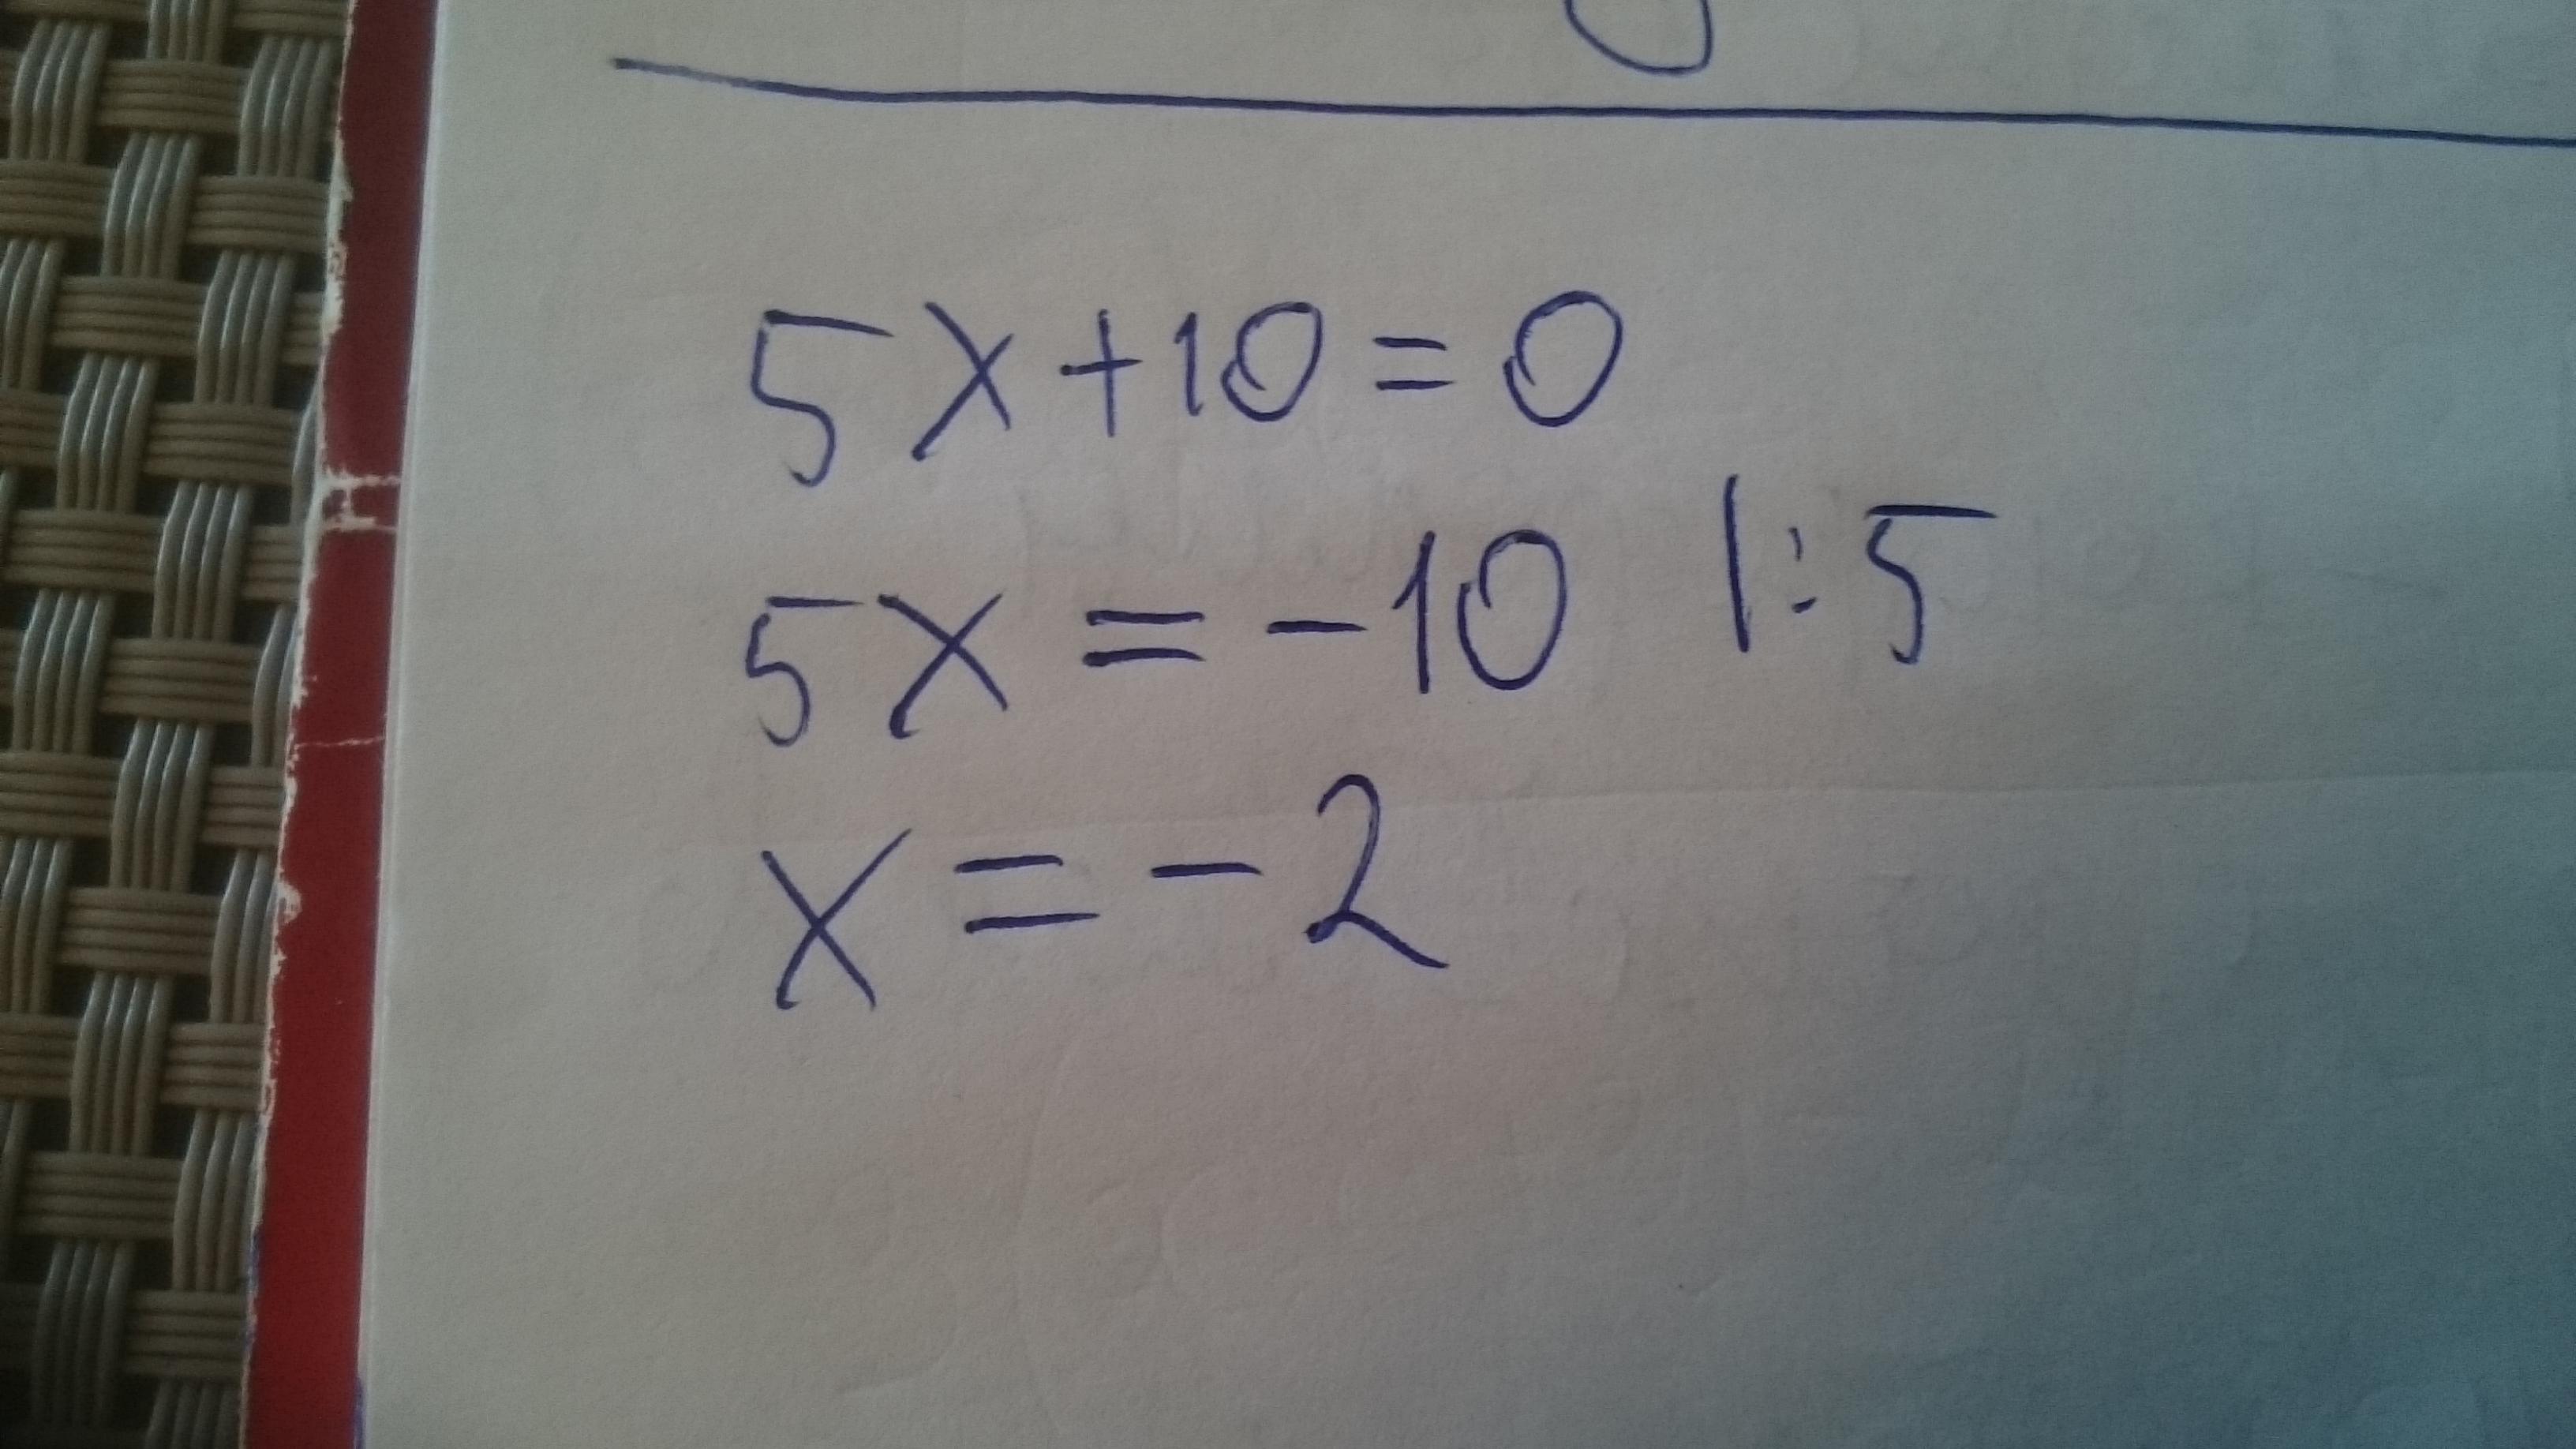 5x+10=0
5x=-10 |:5
x=-2